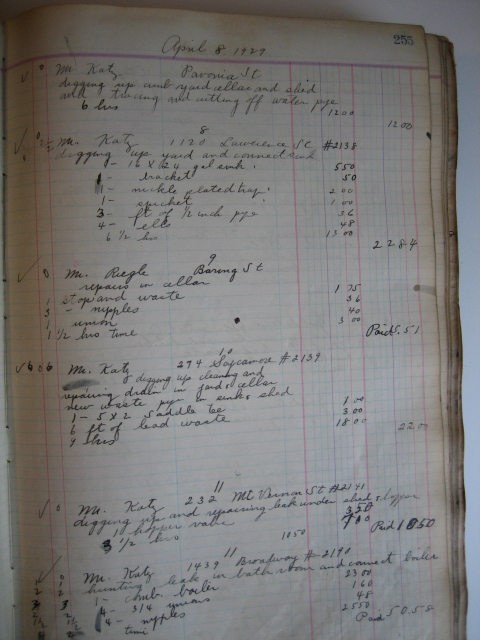 255
April 8 1929
Mr. Katz Pavonia St
digging up yard cellar and shed
and tracing and cutting off water pipe
6 hrs 12 00
12 00
8
Mr. Katz 1120 Lawrence St #2138
digging up yard and connect sink
1- 16 X 24 gal sink 5 50
1- bracket 50
1- nickle plated trap 2 00
1- spicket 1 00
3- ft of 1/2 inch pipe 36
4- ells 48
6 1/2 hrs 13 00
22 84
9
Mr. Riegle Baring St
repairs in cellar
1 stop and waste 1 75
3 - nipples 36
1 union 40
1 1/2 hrs time 3 00
Paid 5.51
10
Mr. Katz 274 Sycamore #2139
digging up cleaning and
repairing drain in yard & cellar
new waste pipe in sink & shed
1- 5 X 2 Saddle tee 1 00
6 ft of lead waste 3 00
9 hrs 18 00
22 00
11
Mr. Katz 232 Mt Vernon St #2141
digging up and repairing leak under shed & hopper
1 hopper valve
3 1/2 hrs
10 50
Paid
11
Mr. Katz 1439 Broadway #2140
hunting leak in bath room and connect boiler
1- comb. boiler 23 00
4- 3/4 unions 1 60
4- nipples 48
time 25 50
Paid 50.58